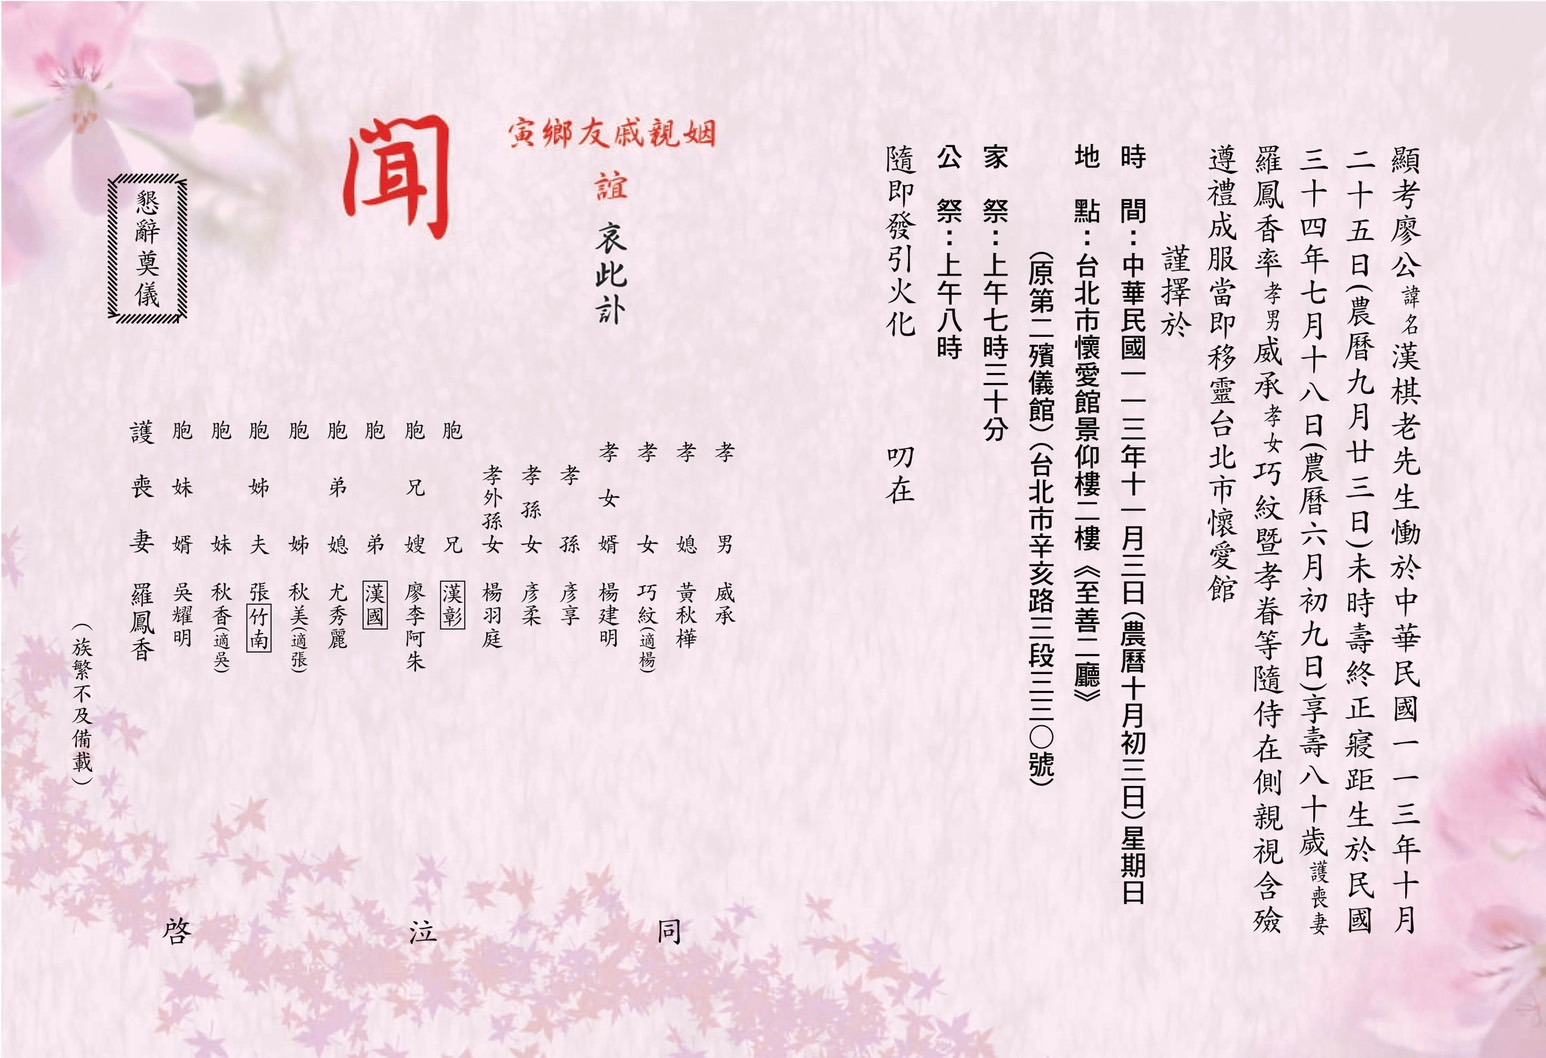 顯考廖公諱名漢棋老先生慟於中華民國一一三年十月
二十五日(農曆九月廿三日)未時壽終正寢距生於民國
三十四年七月十八日(農曆六月初九日)享壽八十歲護喪妻
羅鳳香率孝男威承孝女巧紋暨孝眷等隨侍在側親視含殮
遵禮成服當即移靈台北市懷愛館
謹擇於
時 間：中華民國一一三年十一月三日(農曆十月初三日)星期日
地 點：台北市懷愛館景仰樓二樓《至善二廳》
(原第二殯儀館)(台北市辛亥路三段三三〇號)
家 祭：上午七時三十分
公 祭：上午八時
隨即發引火化 叨在
寅鄉友戚親姻
誼 哀此訃
聞
孝男 威承
孝媳 黃秋樺
孝女 巧紋(適楊)
孝女婿 楊建明
孝孫 彥享
孝孫女 彥柔
孝外孫女 楊羽庭
胞兄 漢彰
胞兄嫂 廖李阿朱
胞弟 漢國
胞弟媳 尤秀麗
胞姊 秋美(適張)
胞姊夫 張竹南
胞妹 秋香(適吳)
胞妹婿 吳耀明
護喪妻 羅鳳香
(族繁不及備載)
同 泣 啓
懇辭奠儀